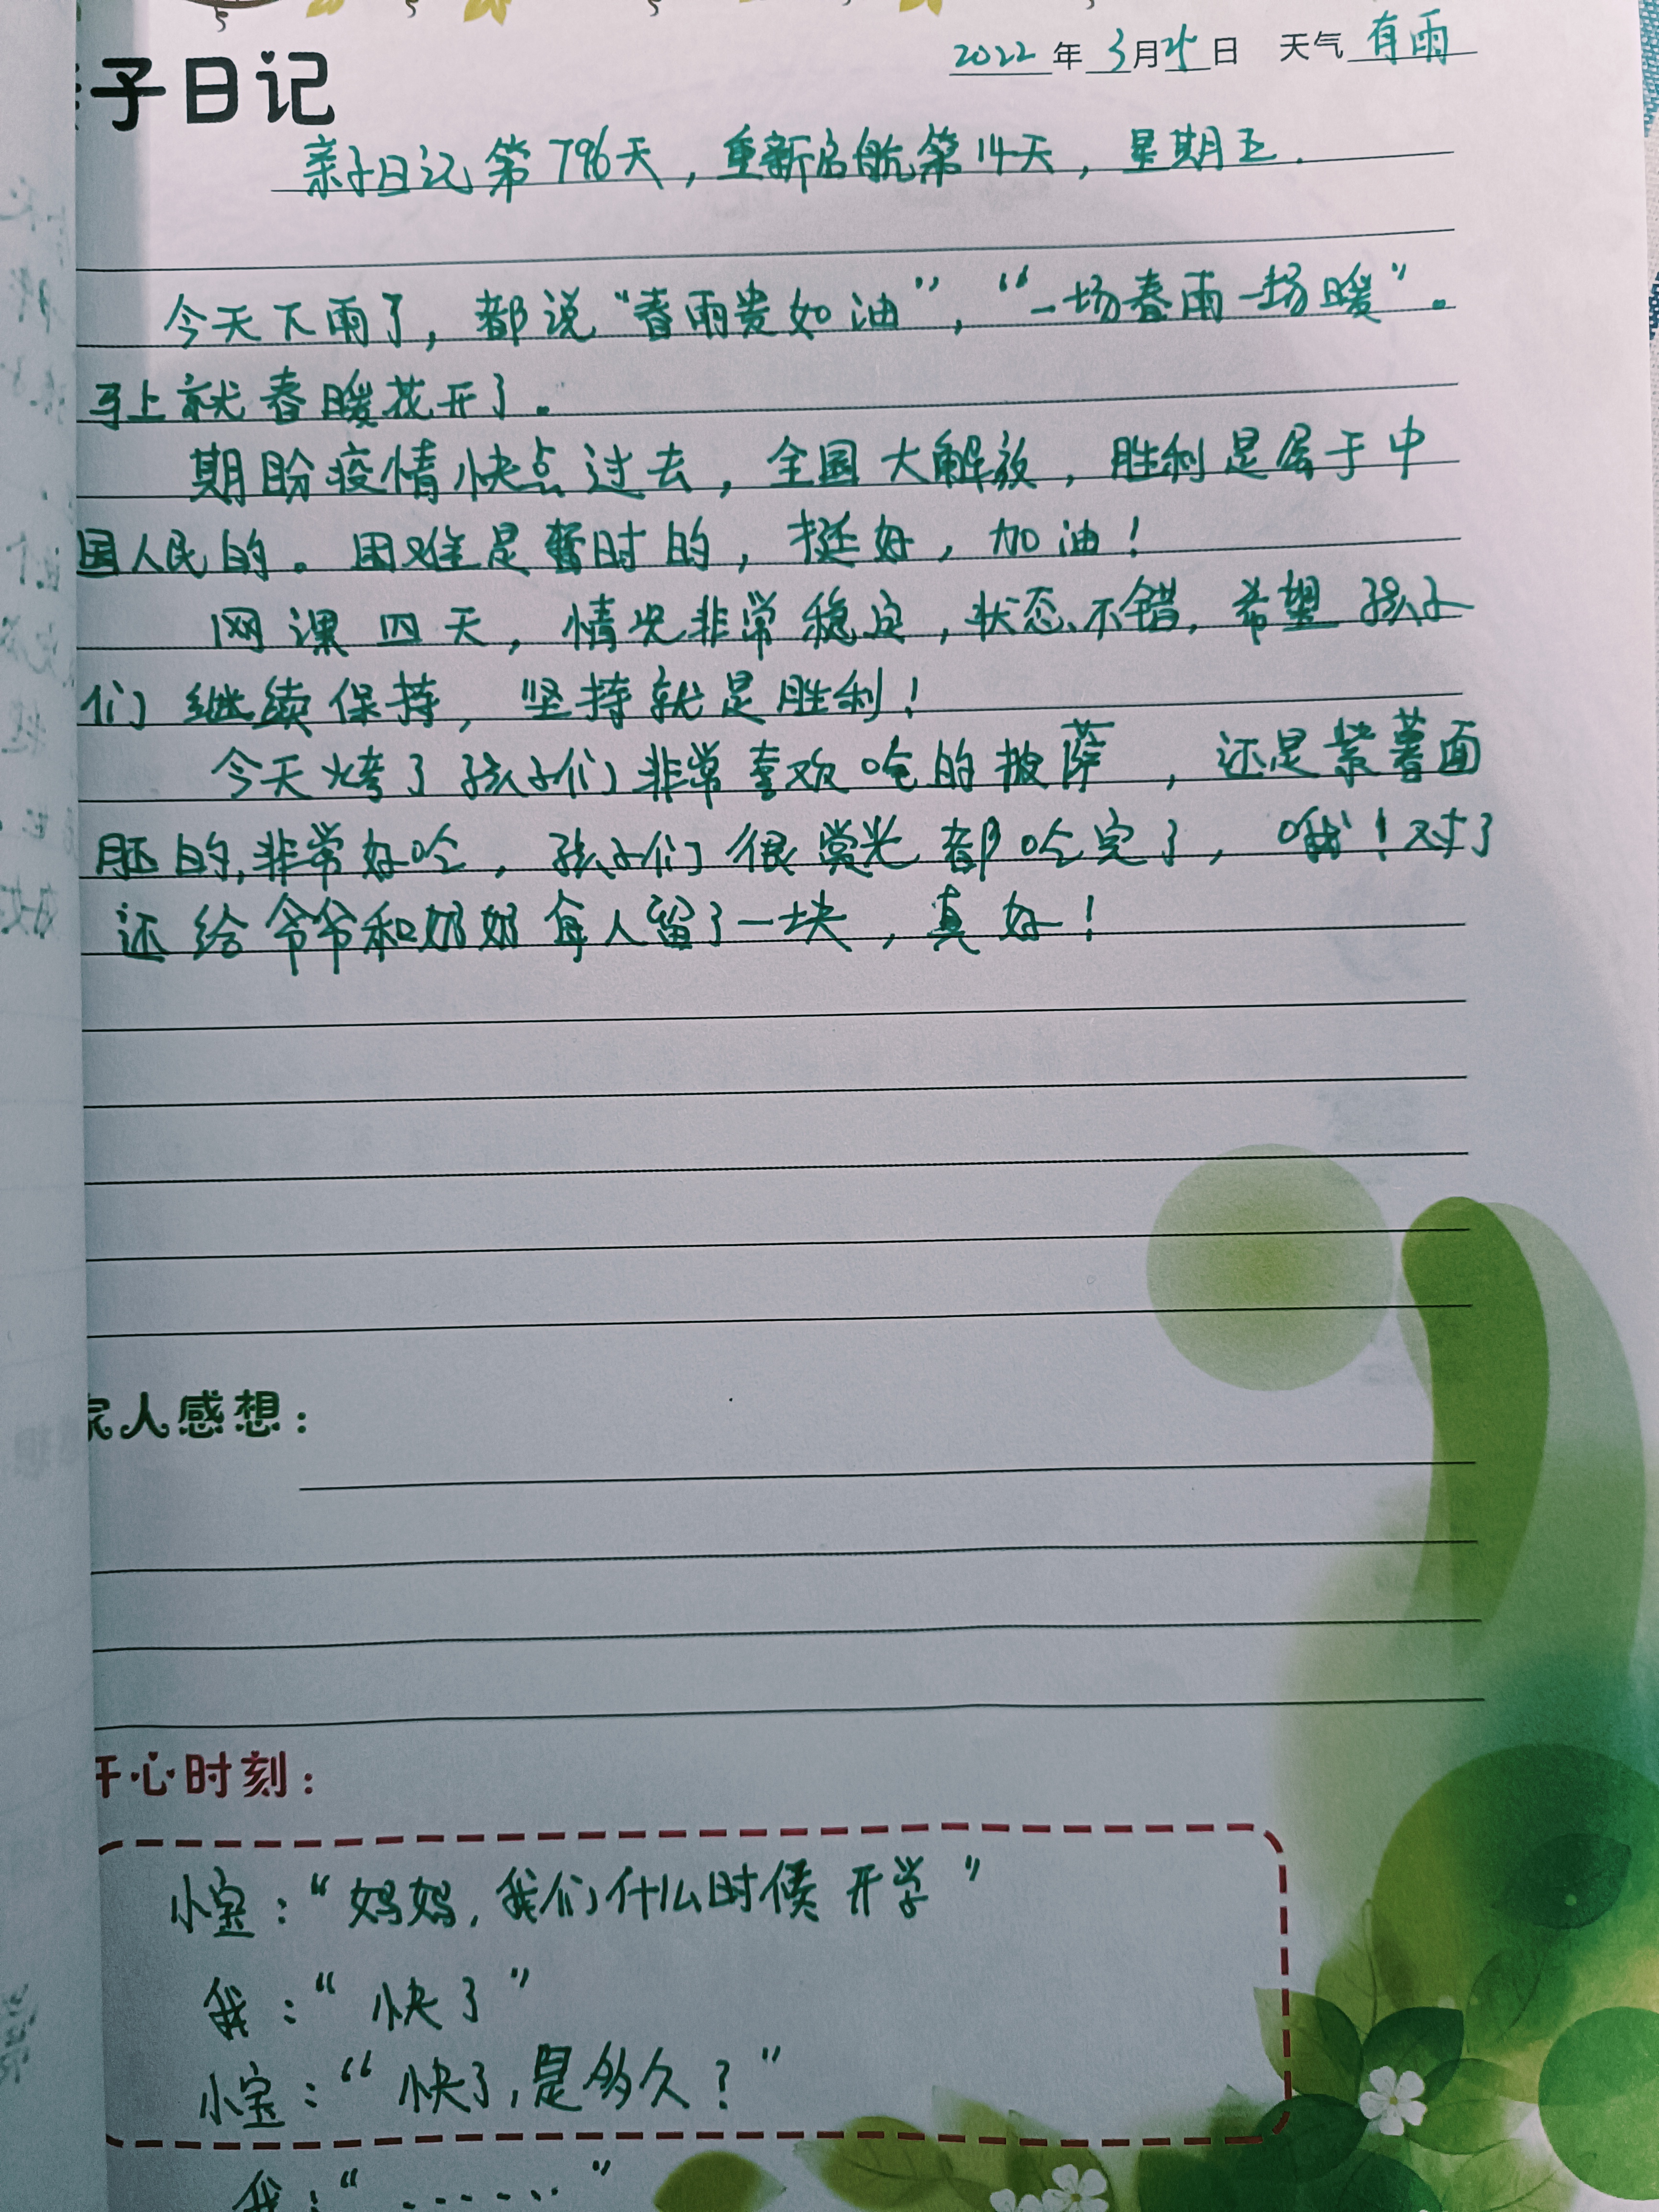 子日记
2022年3月25日 天气有雨
亲子日记第796天，重新启航第14天，星期五.
今天下雨了，都说“春雨贵如油”，“一场春雨一场暖”。
马上就春暖花开了。
期盼疫情快点过去，全国大解放，胜利是属于中
国人民的。困难是暂时的，挺好，加油！
网课四天，情况非常稳定，状态不错，希望孩子
们继续保持，坚持就是胜利！
今天烤了孩子们非常喜欢吃的披萨，还是紫薯面
胚的，非常好吃，孩子们很赏光都吃完了，哦！对了
还给爷爷和奶奶每人留了一块，真好！
家人感想：
开心时刻：
小宝：“妈妈，我们什么时候开学”
我：“快了”
小宝：“快了，是多久？”
我：“......”